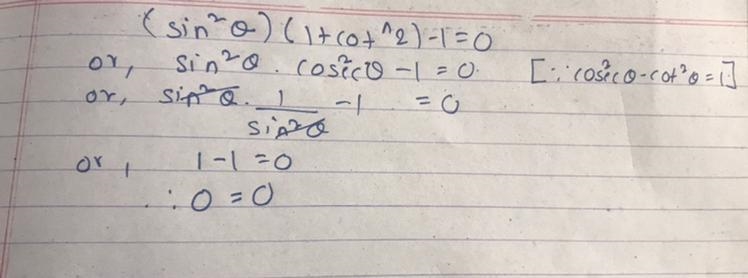 (sin²θ)(1+cot^2)-1=0
or, sin²θ. cosec²θ -1 = 0. [∵ cosec²θ-cot²θ=1]
or, sin²θ. 1/sin²θ -1 = 0
or, 1-1=0
∴ 0=0